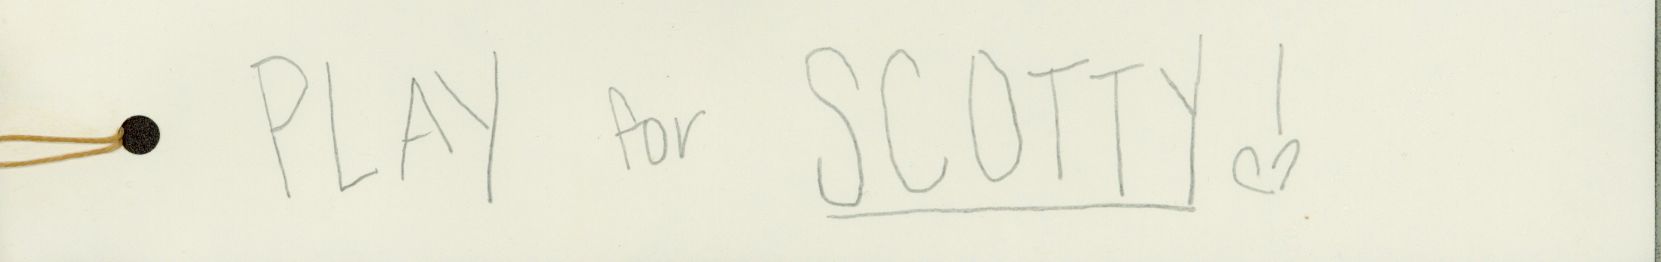 PLAY for SCOTTY!